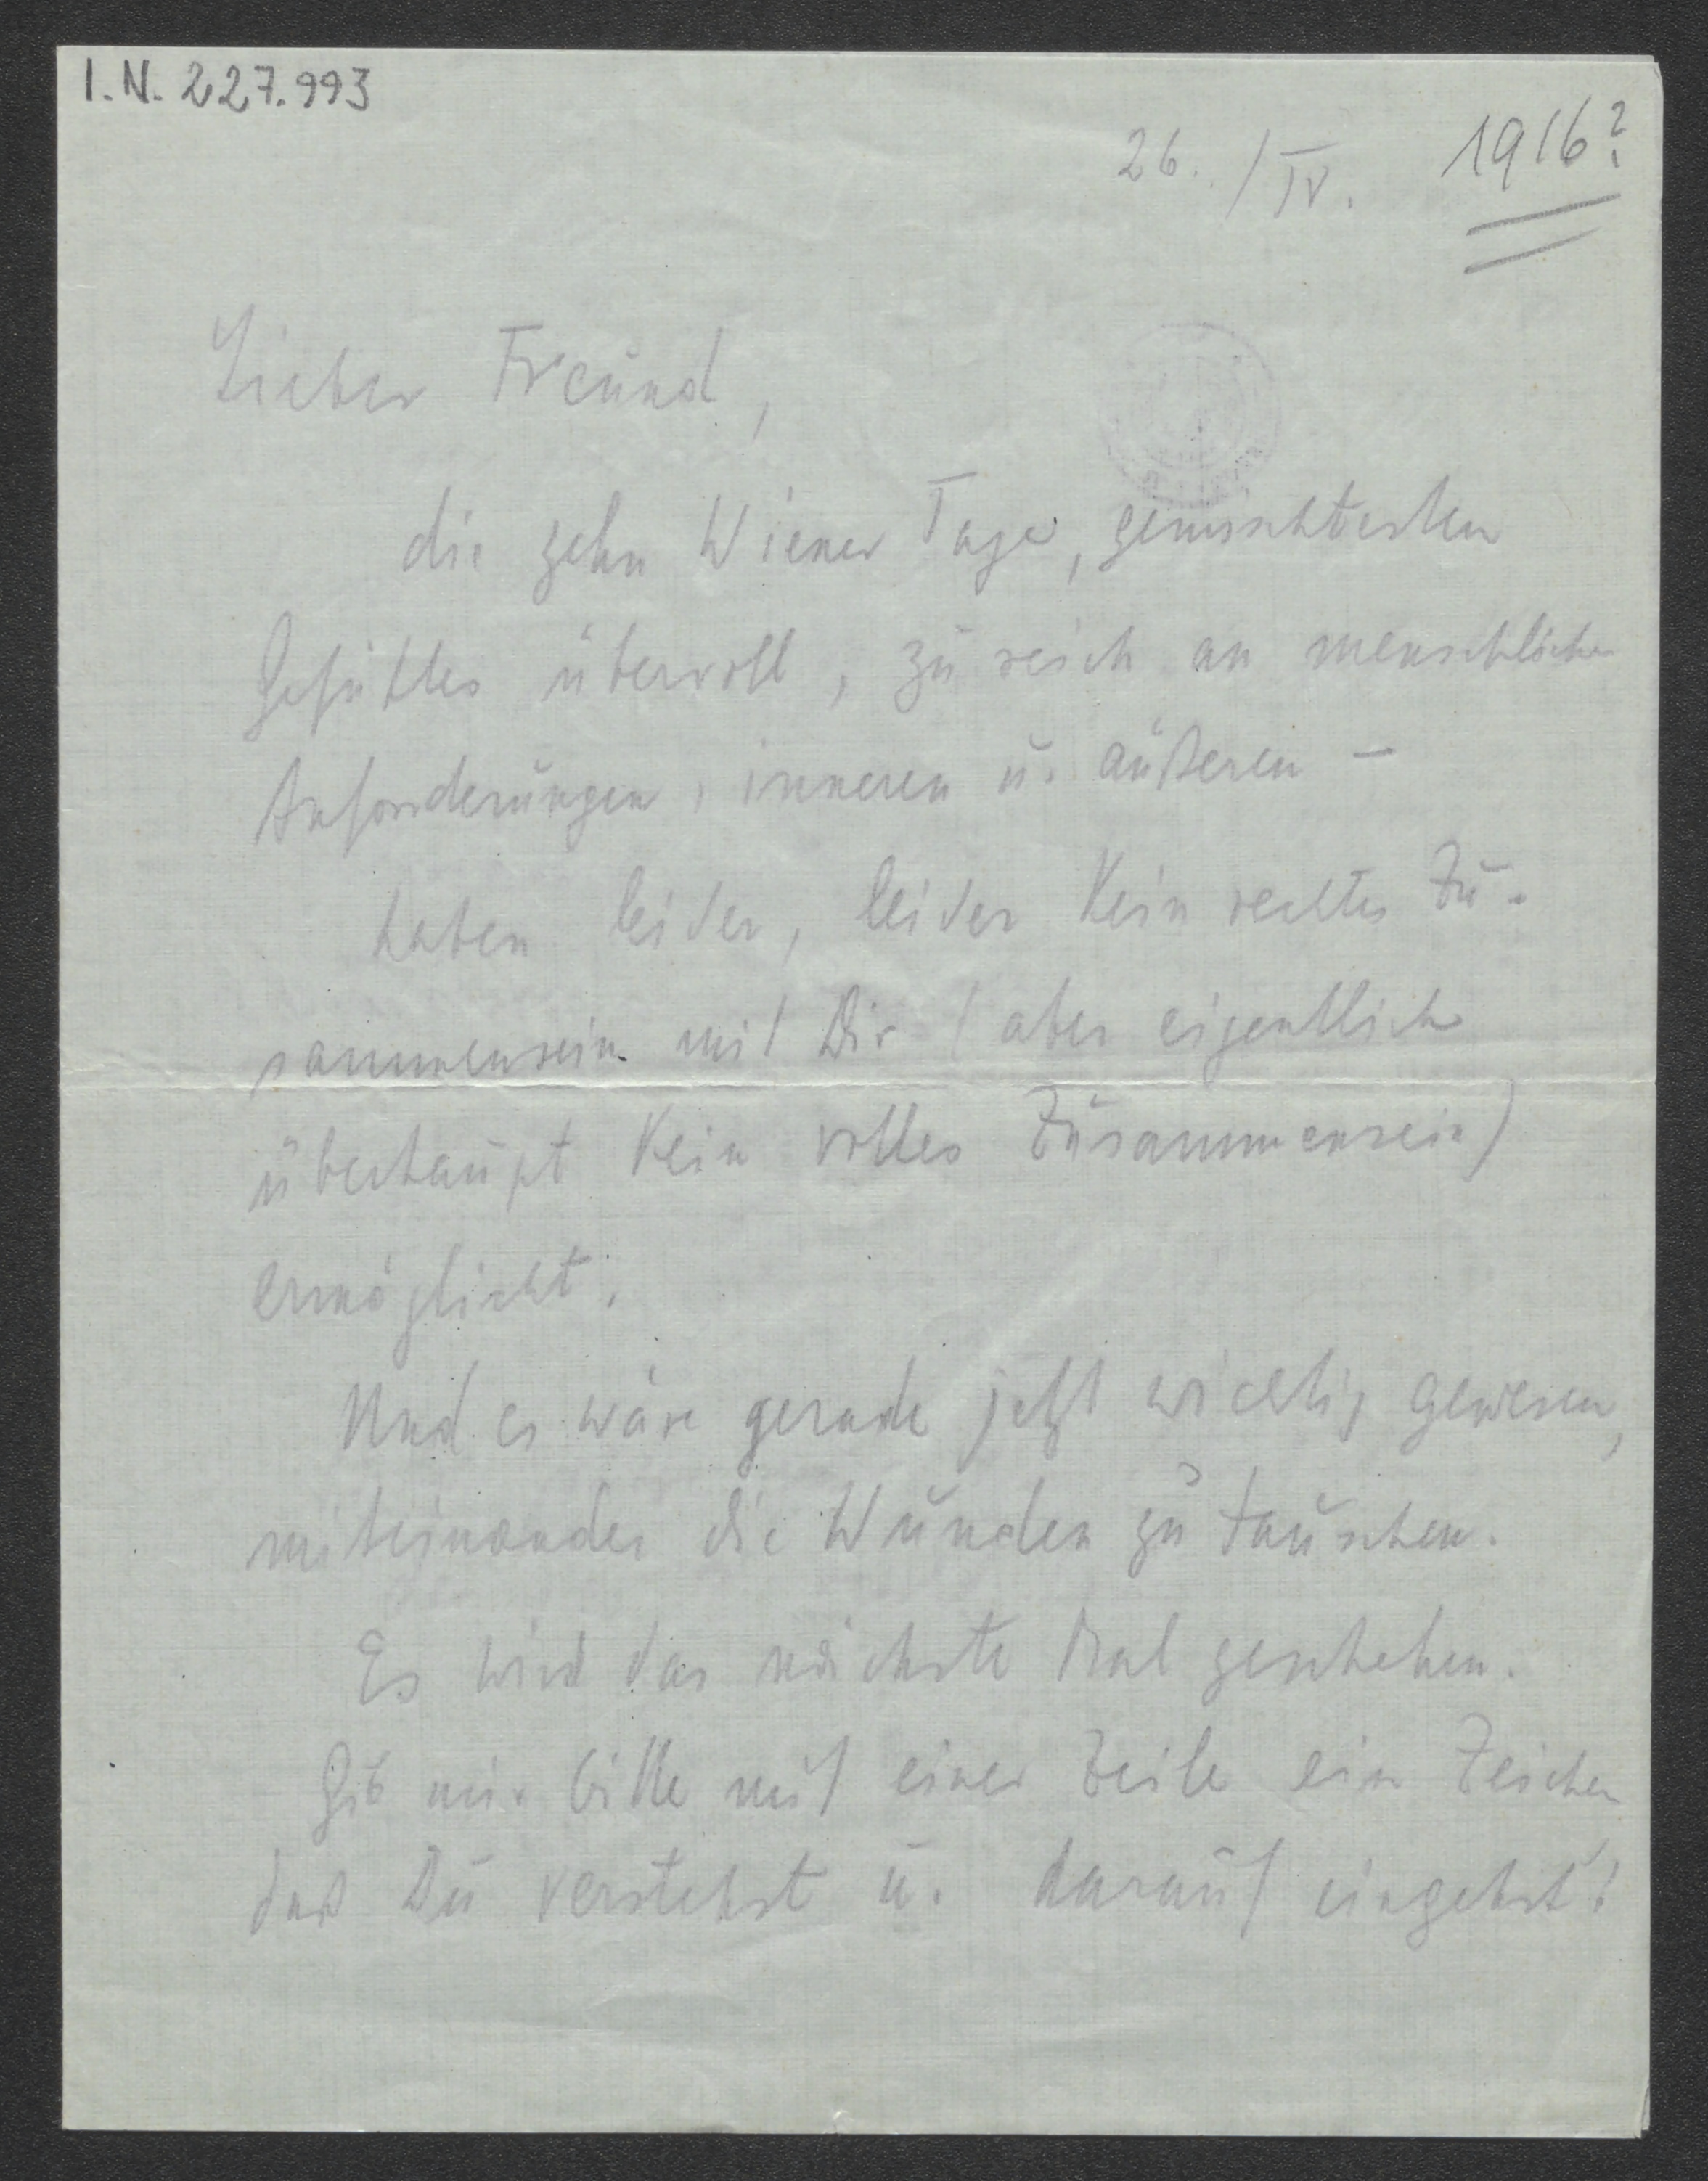 I.N. 227.993
26./IV. 1916?
Lieber Freund,
die zehn Wiener Tage, gemischtesten
Gefühles übervoll, zu reich an menschlichen
Anforderungen, inneren u. äußeren –
haben leider, leider kein rechtes Zu-
sammensein mit Dir (aber eigentlich
überhaupt kein volles Zusammensein)
ermöglicht.
Und es wäre gerade jetzt wichtig gewesen,
miteinander die Wunden zu tauschen.
Es wird das nächste Mal geschehen.
Gib mir bitte mit einer Zeile ein Zeichen
daß Du verstehst u. darauf eingehst!